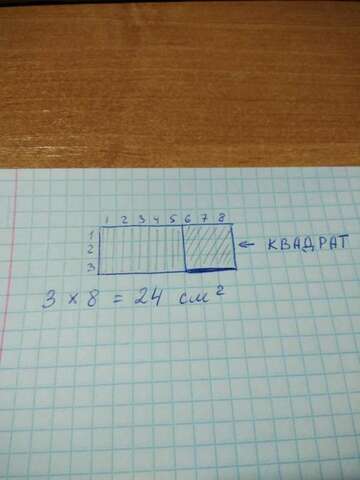 1 2 3 4 5 6 7 8
1
2
3
← КВАДРАТ
3 × 8 = 24 см²